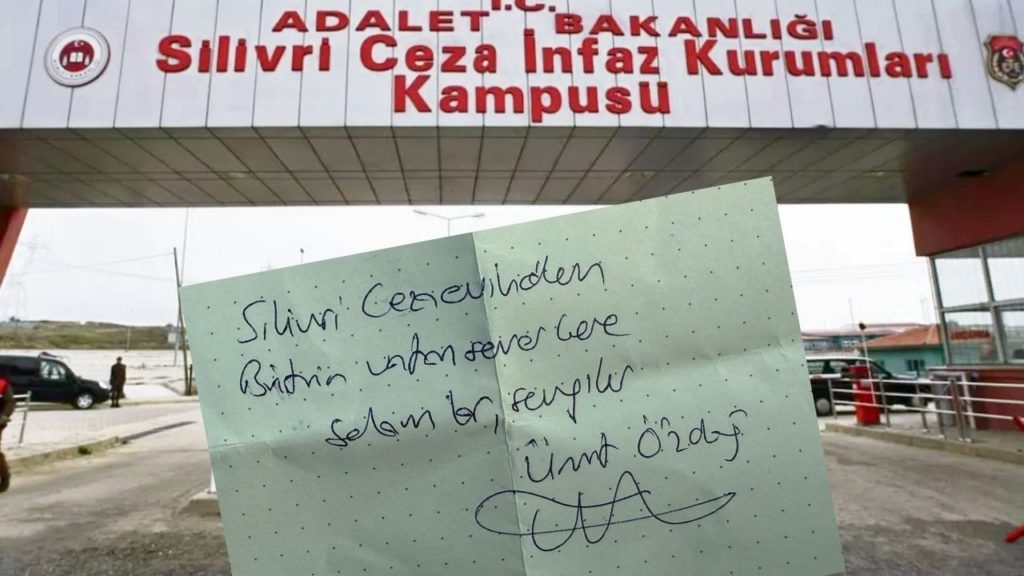 T.C.
ADALET BAKANLIĞI
Silivri Ceza İnfaz Kurumları
Kampusü
Silivri Cezaevinden
Bütün vatanseverlere
selamlar, sevgiler
Ümit Özdağ